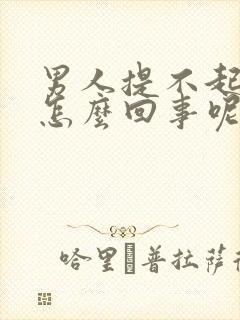 男人提不起
怎麼回事呢
哈里普拉薩